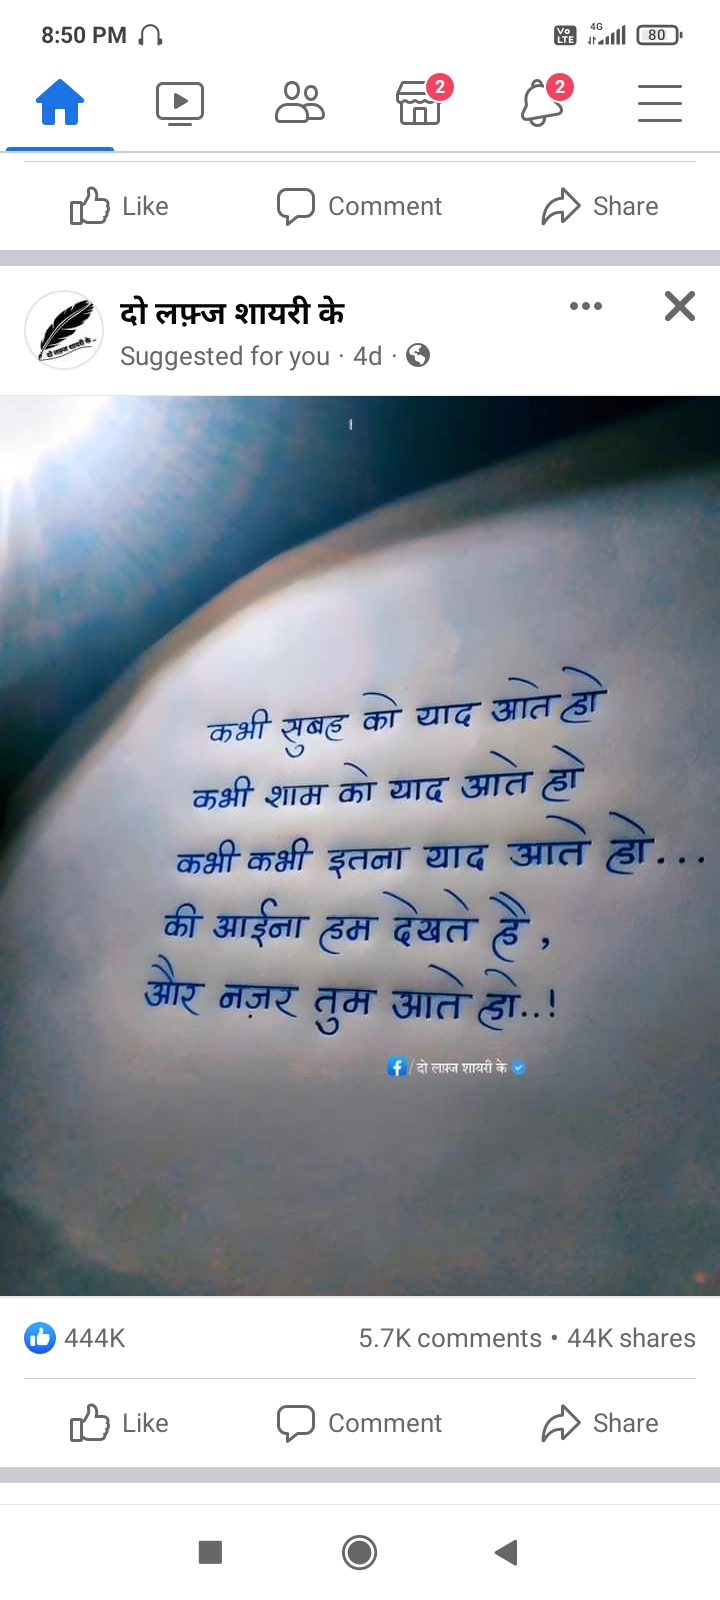 8:50 PM
Vo LTE 4G 80
2 2
Like Comment Share
दो लफ़्ज शायरी के
Suggested for you · 4d ·
कभी सुबह को याद आते हो
कभी शाम को याद आते हो
कभी कभी इतना याद आते हो...
की आईना हम देखते है ,
और नज़र तुम आते हो..!
f/दो लफ़्ज शायरी के
444K 5.7K comments • 44K shares
Like Comment Share